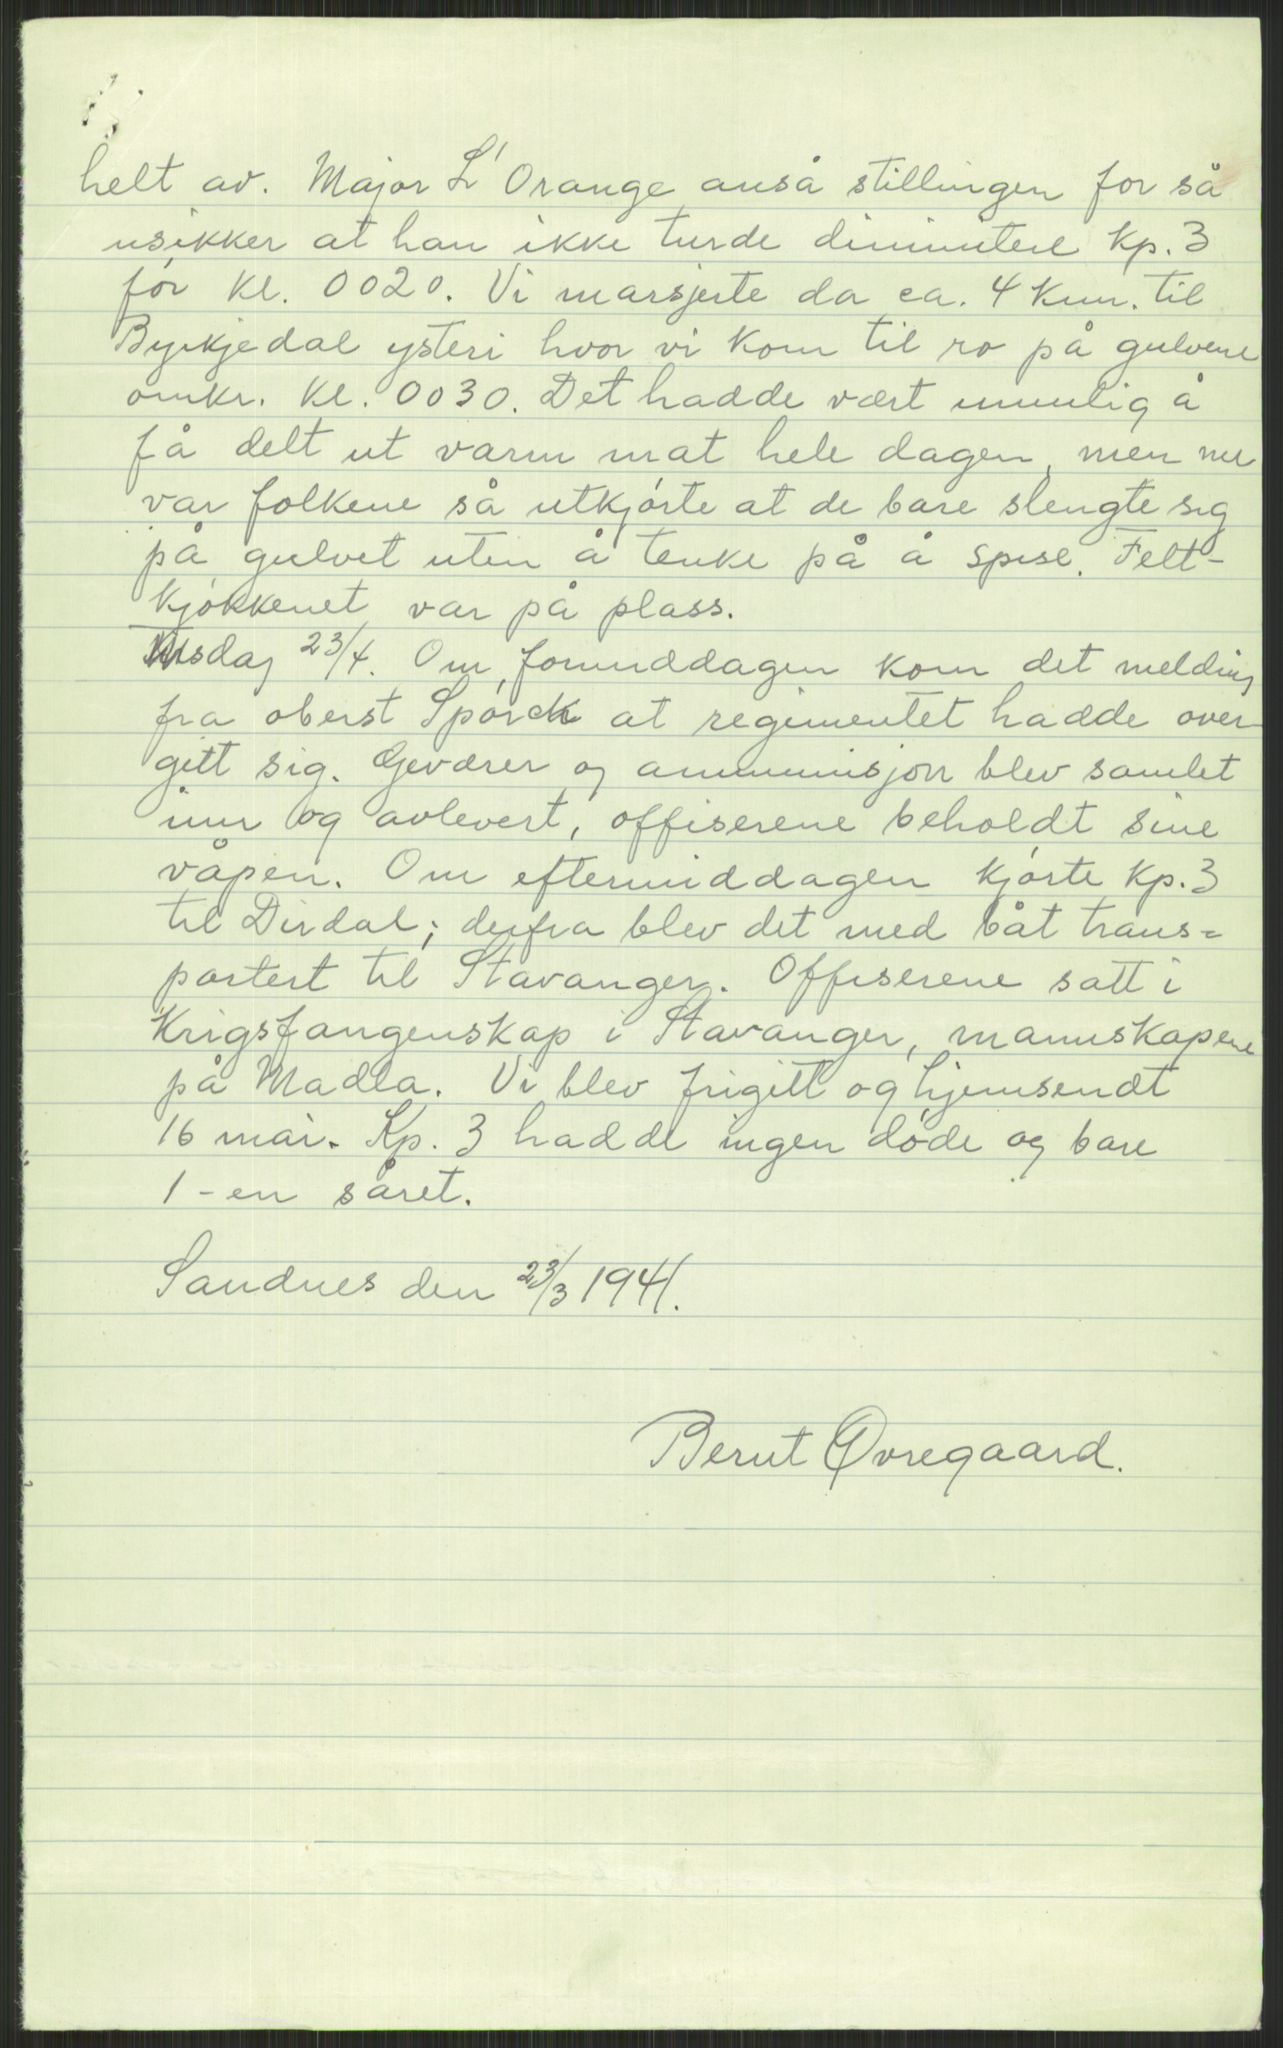 helt av. Major L'Orange anså stillingen for så
usikker at han ikke turde diminitere Kp. 3
før kl. 0020. Vi marsjerte da ca. 4 km. til
Byrkjedal ysteri hvor vi kom til ro på gulvene
omkr. kl. 0030. Det hadde vært umulig å
få delt ut varm mat hele dagen, men nu
var folkene så utkjørte at de bare slengte sig
på gulvet uten å tenke på å spise. Felt-
kjøkkenet var på plass.
Tirsdag 23/4. Om formiddagen kom det melding
fra oberst Spørck at regimentet hadde over-
gitt sig. Geværer og ammunisjon blev samlet
inn og avlevert, offiserene beholdt sine
våpen. Om eftermiddagen kjørte Kp. 3
til Dirdal; derfra blev det med båt trans=
portert til Stavanger. Offiserene satt i
Krigsfangenskap i Stavanger, mannskapene
på Madla. Vi blev frigitt og hjemsendt
16 mai. Kp. 3 hadde ingen døde og bare
1 - en såret.
Sandnes den 23/3 1941.
Bernt Øvregaard.